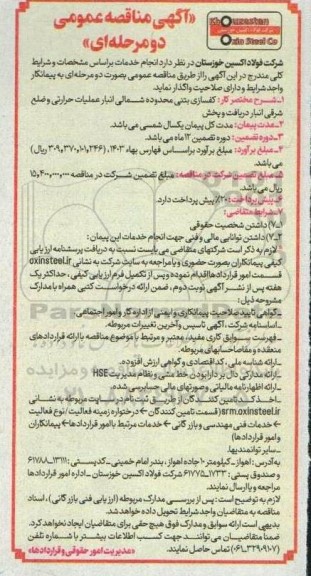 «آگهی مناقصه عمومی
دو مرحله‌ای»
Khouzestan
Oxin Steel Co
شرکت فولاد اکسین خوزستان در نظر دارد انجام خدمات براساس مشخصات و شرایط
کلی مندرج در این آگهی را از طریق مناقصه عمومی بصورت دو مرحله‌ای به پیمانکار
واجد شرایط و دارای صلاحیت واگذار نماید.
۱ـ شرح مختصر کار: کفسازی بتنی محدوده شمالی انبار عملیات حرارتی و ضلع
شرقی انبار دریافت و پخش
۲ـ مدت پیمان: مدت کل پیمان یکسال شمسی می باشد.
۳ـ دوره تضمین: دوره تضمین ۱۲ ماه می باشد.
۴ـ مبلغ برآورد: مبلغ برآورد براساس فهارس بهاء ۱۴۰۳، (۳۰۹,۳۷۰,۱۰۱,۲۴۶ ریال)
می باشد.
۵ـ مبلغ تضمین شرکت در مناقصه: مبلغ تضمین شرکت در مناقصه ۱۵,۴۰۰,۰۰۰,۰۰۰
ریال می باشد.
۶ـ پیش پرداخت: ۲۰٪ پیش پرداخت دارد.
۷ـ شرایط متقاضی:
۷ـ۱) داشتن شخصیت حقوقی
۷ـ۲) داشتن توانایی مالی و فنی جهت انجام خدمات این پیمان:
لازم به ذکر است شرکتهای متقاضی می بایست نسبت به دریافت پرسشنامه ارزیابی
کیفی پیمانکاران بصورت حضوری و یا مراجعه به سایت شرکت به نشانی oxinsteel.ir
قسمت امور قراردادها اقدام نموده و پس از تکمیل فرم ارزیابی کیفی، حداکثر یک
هفته پس از نشر آگهی نوبت دوم، ضمن ارائه درخواست کتبی همراه با مدارک
مشروحه ذیل:
ـ گواهی تایید صلاحیت پیمانکاری و ایمنی از اداره کار و امور اجتماعی
ـ اساسنامه شرکت، آگهی تاسیس و آخرین تغییرات مربوطه.
ـ فهرست سوابق کاری مفید، معتبر و مرتبط با موضوع مناقصه با ارائه قراردادهای
منعقده و مفاصاحسابهای مربوطه.
ـ ارائه شناسه ملی، کد اقتصادی و گواهی ارزش افزوده.
ـ ارائه مدارکی دال بر دارا بودن خط مشی و نظام مدیریت HSE
ـ ارائه اظهارنامه مالیاتی و صورتهای مالی حسابرسی شده.
ـ اخذ کد تامین کنندگان از طریق ثبت نام در سایت مربوطه به نشانی
srm.oxinsteel.ir (قسمت تامین کنندگان ← در حتواره زمینه فعالیت / نوع فعالیت
← خدمات فنی مهندسی و بازرگانی ← خدمات مرتبط با امور قراردادها ← پیمانکاران
و امور قراردادها)
ـ سایر توانمندیها.
به آدرس: اهواز ـ کیلومتر ۱۰ جاده اهواز، بندر امام خمینی ـ کدپستی: ۱۳۱۱۱ـ۶۱۷۸۸
و صندوق پستی: ۱۷۳۲ـ۶۱۷۷۵ شرکت فولاد اکسین خوزستان ـ اداره امور قراردادها
مراجعه و یا ارسال نمایند.
لازم به توضیح است: پس از بررسی مدارک مربوطه (ارزیابی فنی بازرگانی)، اسناد
مناقصه به متقاضیان واجد شرایط تحویل داده خواهد شد.
بدیهی است ارائه سوابق و مدارک فوق هیچ حقی برای متقاضیان ایجاد نخواهد کرد.
ضمنا متقاضیان می توانند جهت کسب اطلاعات بیشتر با شماره تلفن
(۰۶۱ـ۳۲۹۰۹۱۰۷) تماس حاصل نمایند.
«مدیریت امور حقوقی و قراردادها»